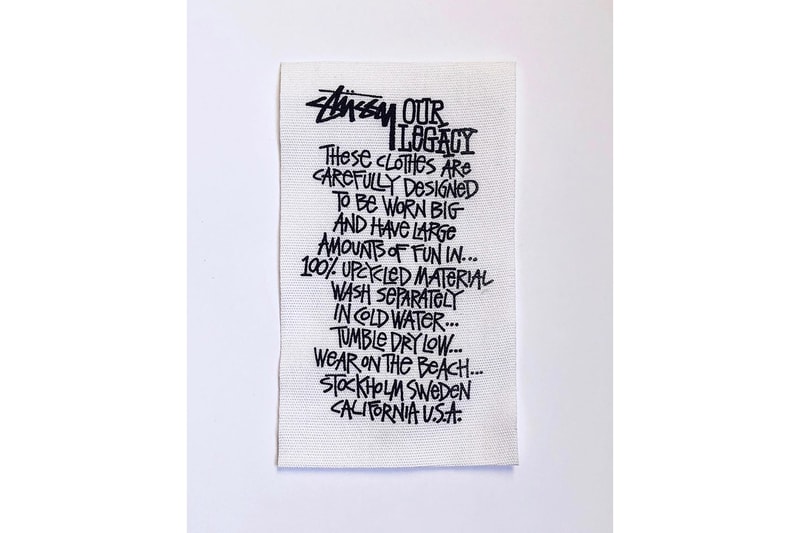 STÜSSY OUR
LEGACY
THESE CLOTHES ARE
CAREFULLY DESIGNED
TO BE WORN BIG
AND HAVE LARGE
AMOUNTS OF FUN IN...
100% UPCYCLED MATERIAL
WASH SEPARATELY
IN COLD WATER...
TUMBLE DRY LOW...
WEAR ON THE BEACH...
STOCKHOLM SWEDEN
CALIFORNIA U.S.A.